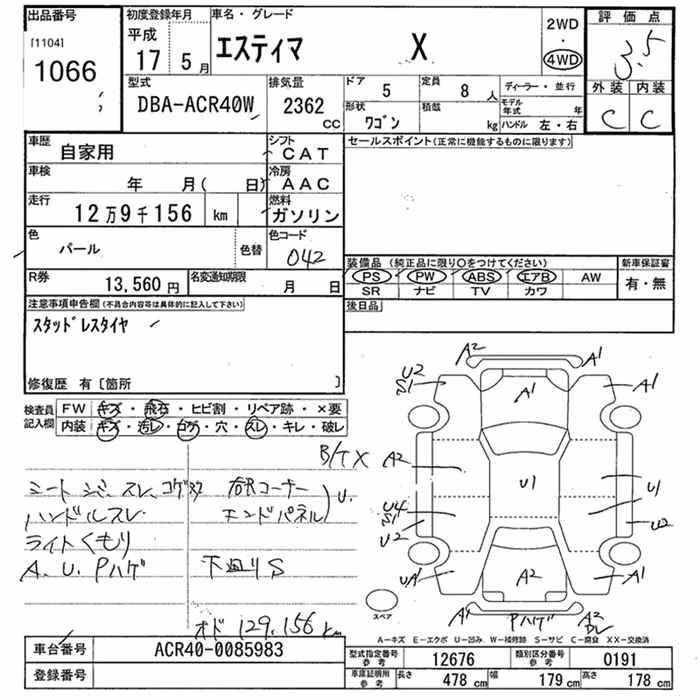 出品番号
[1104]
1066
初度登録年月
平成
17 5月
車名・グレード
エスティマ X
2WD
・
4WD
評価点
3.5
外装 内装
C C
型式
DBA-ACR40W
排気量
2362
CC
ドア
5
定員
8 人
ディーラー・並行
形状
ワゴン
積載
kg
モデル
年式 年
ハンドル 左・右
車歴
自家用
シフト
CAT
車検
年 月( 日)
冷房
AAC
走行
12万9千156 km
燃料
ガソリン
色
パール
色替
色コード
042
R券
13,560円
名変通知期限
月 日
セールスポイント(正常に機能するものに限ります)
装備品 (純正品に限り〇をつけてください)
PS PW ABS エアB AW
SR ナビ TV カワ
新車保証書
有・無
後日品
注意事項申告欄(不具合内容等は具体的に記入して下さい)
スタッドレスタイヤ
修復歴 有〔箇所 〕
検査員
記入欄
FW キズ・飛石・ヒビ割・リペア跡・×要
内装 キズ・汚レ・コゲ・穴・スレ・キレ・破レ
B/TX
シートシミ、スレ、コゲ穴
ハンドルスレ
ライトくもり
A.U.Pハゲ
右Rコーナー
エンドパネル U.
下廻りS
オド 129,156 km
A2 A1
U2
S1 A1 A1
A2
U1 U1
U4
S1
U2 U2
A2 A1
A1 Pハゲ A2
スペア
A−キズ E−エクボ U−凹み W−補修跡 S−サビ C−腐食 XX−交換済
車台番号
ACR40-0085983
登録番号
型式指定番号
参考
12676
類別区分番号
参考
0191
車庫証明用
参考
長さ 478 cm 幅 179 cm 高さ 178 cm